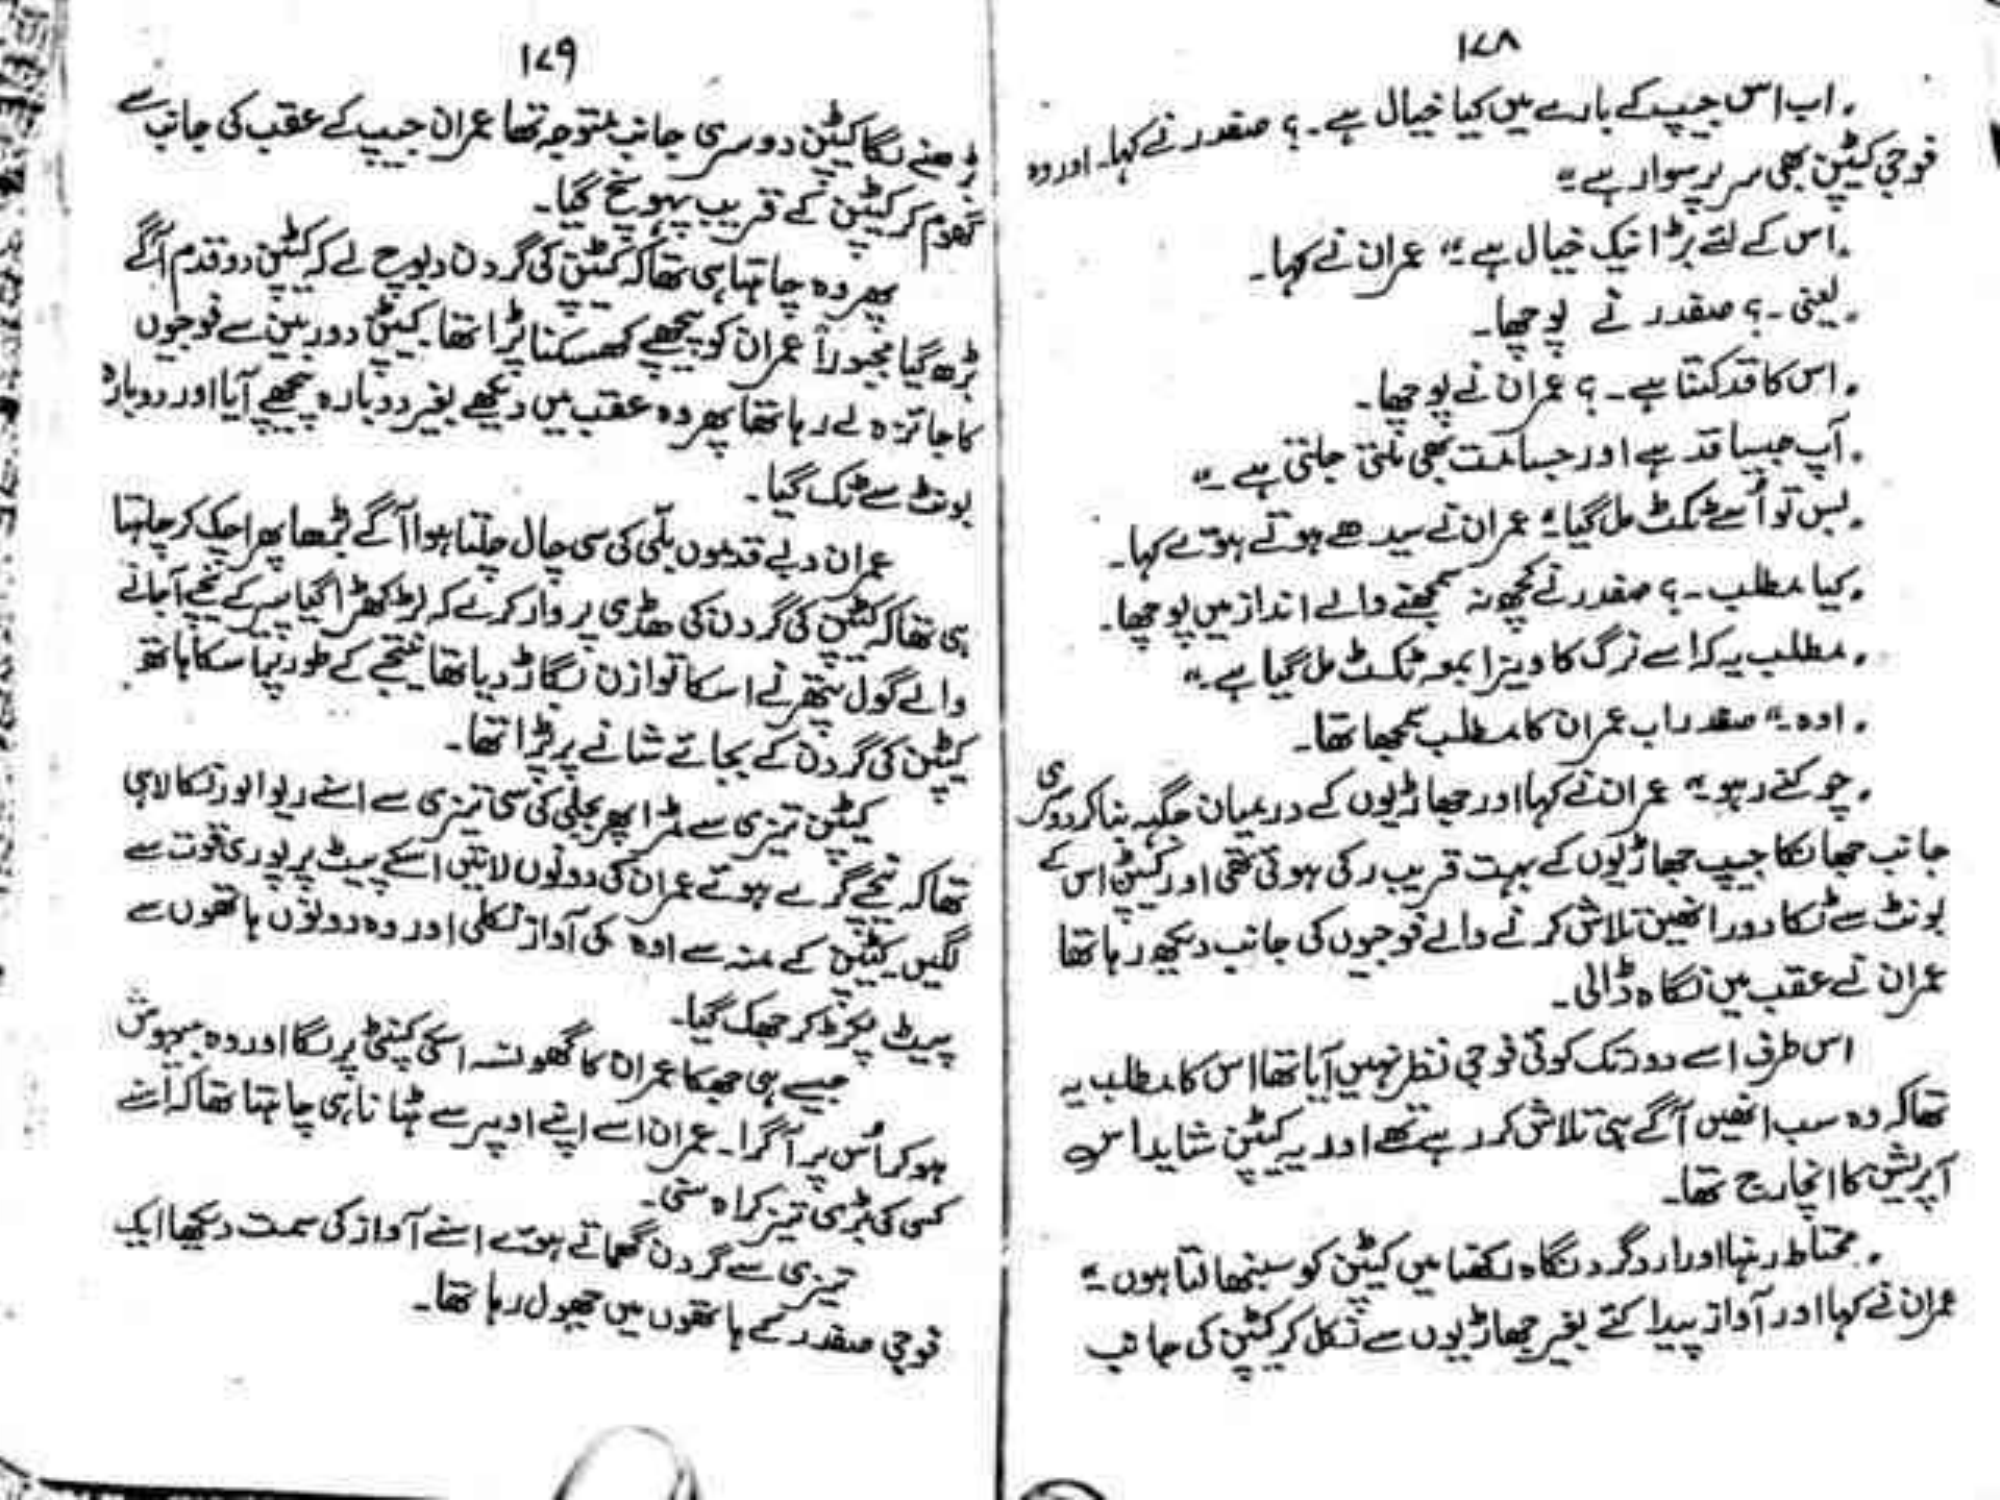 ۱۷۸
۔ اب اس جیپ کے بارے میں کیا خیال ہے۔؟ صفدر نے کہا۔ اور وہ
فوجی کیپٹن بھی سر پر سوار ہے۔"
۔ اس کے لئے بڑا نیک خیال ہے۔" عمران نے کہا۔
۔ یعنی۔؟ صفدر نے پوچھا۔
۔ اس کا قد کتنا ہے۔؟ عمران نے پوچھا۔
۔ آپ جیسا قد ہے اور جسامت بھی ملتی جلتی ہے۔"
۔ بس تو اُسے ٹکٹ مل گیا۔" عمران نے سیدھے ہوتے ہوئے کہا۔
۔ کیا مطلب۔؟ صفدر نے کچھ نہ سمجھنے والے انداز میں پوچھا۔
۔ مطلب یہ کہ اسے نرگ کا ویزا بمعہ ٹکٹ مل گیا ہے۔"
۔ اوہ۔" صفدر اب عمران کا مطلب سمجھا تھا۔
۔ چوکنے رہو۔" عمران نے کہا اور جھاڑیوں کے درمیان جگہ بنا کر دوسری
جانب جھانکا جیپ جھاڑیوں کے بہت قریب رکی ہوئی تھی اور کیپٹن اس کے
بونٹ سے ٹکا دور انھیں تلاش کرنے والے فوجیوں کی جانب دیکھ رہا تھا
عمران نے عقب میں نگاہ ڈالی۔
اس طرف اسے دور تک کوئی فوجی نظر نہیں آیا تھا اس کا مطلب یہ
تھا کہ وہ سب انھیں آگے ہی تلاش کر رہے تھے اور یہ کیپٹن شاید اس
آپریشن کا انچارج تھا۔
۔ محتاط رہنا اور ارد گرد نگاہ رکھنا میں کیپٹن کو سنبھالتا ہوں۔"
عمران نے کہا اور آواز پیدا کئے بغیر جھاڑیوں سے نکل کر کیپٹن کی جانب
۱۷۹
بڑھنے لگا کیپٹن دوسری جانب متوجہ تھا عمران جیپ کے عقب کی جانب سے
گھوم کر کیپٹن کے قریب پہونچ گیا۔
پھر وہ چاہتا ہی تھا کہ کیپٹن کی گردن دبوچ لے کہ کیپٹن دو قدم آگے
بڑھ گیا مجبوراً عمران کو پیچھے کھسکنا پڑا تھا۔ کیپٹن دوربین سے فوجیوں
کا جائزہ لے رہا تھا پھر وہ عقب میں دیکھے بغیر دوبارہ پیچھے آیا اور دوبارہ
بونٹ سے ٹک گیا۔
عمران دبے قدموں بلّی کی سی چال چلتا ہوا آگے بڑھا پھر اچک کر چاہتا
ہی تھا کہ کیپٹن کی گردن کی ھڈی پر وار کرے کہ لڑکھڑا گیا پیر کے نیچے آ جانے
والے گول پتھر نے اسکا توازن بگاڑ دیا تھا نتیجے کے طور پہ اسکا ہاتھ
کیپٹن کی گردن کے بجائے شانے پر پڑا تھا۔
کیپٹن تیزی سے مڑا پھر بجلی کی سی تیزی سے اسنے ریوالور نکالا ہی
تھا کہ نیچے گرے ہوئے عمران کی دونوں لاتیں اسکے پیٹ پر پوری قوت سے
لگیں کیپٹن کے منہ سے اوہ کی آواز نکلی اور وہ دونوں ہاتھوں سے
پیٹ پکڑ کر جھک گیا۔
جیسے ہی جھکا عمران کا گھونسہ اسکی کنپٹی پر لگا اور وہ بیہوش
ہو کر اُس پر آ گرا۔ عمران اسے اپنے اوپر سے ہٹانا ہی چاہتا تھا کہ اُسنے
کسی کی بڑی تیز کراہ سنی۔
تیزی سے گردن گھماتے ہوئے اسنے آواز کی سمت دیکھا ایک
فوجی صفدر کے ہاتھوں میں جھول رہا تھا۔